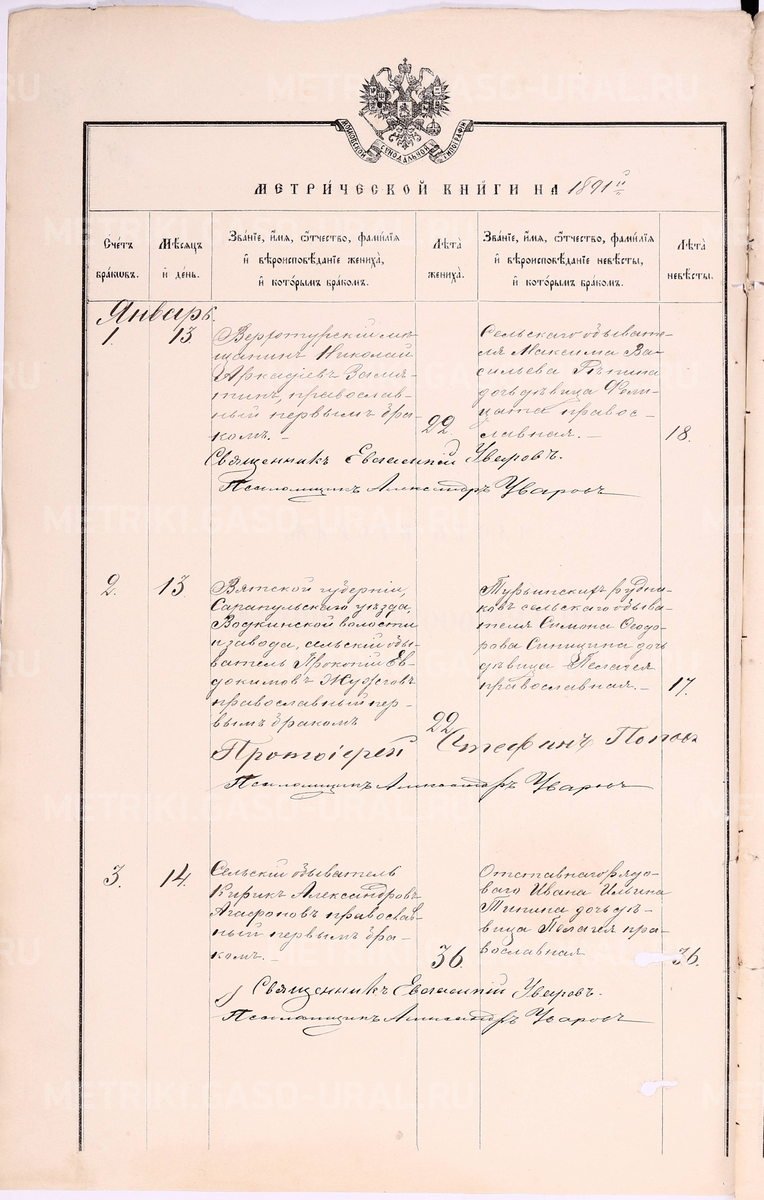 МОСКОВСКОЙ СѴНОДАЛЬНОЙ ТИПОГРАФІИ
МЕТРИ́ЧЕСКОЙ КНИ́ГИ НА 1891й
Сче́тъ бра́ковъ.
Мѣ́сяцъ и҆ день.
Зва́нїе, и҆́мя, ѻ҆́тчество, фами́лїя и҆ вѣроисповѣ́данїе жениха̀, и҆ кото́рымъ бра́комъ.
Лѣ́та жениха̀.
Зва́нїе, и҆́мя, ѻ҆́тчество, фами́лїя и҆ вѣроисповѣ́данїе невѣ́сты, и҆ кото́рымъ бра́комъ.
Лѣ́та невѣ́сты.
Январь.
1. 13
Верхотурскій мѣ-
щанинъ Николай
Аркадіевъ Замя-
тинъ, православ-
ный первымъ бра-
комъ.-
22
Сельскаго обывате-
ля Максима Ва-
сильева Рѣпина
дочь дѣвица Фели-
цата правос-
лавная.-
18.
Священникъ Евгампій Уваровъ.
Псаломщикъ Александръ Уваровъ
2. 13
Вятской губерніи,
Сарапульскаго уѣзда,
Водкинской волости
и завода, сельскій обы-
ватель Прокопій Ев-
докимовъ
православный пер-
вымъ бракомъ
22
Турьинскихъ рудни-
ковъ сельскаго обыва-
теля Симона Ѳеодо-
рова Синицина дочь
дѣвица Пелагея
православная.-
17.
Протоіерей Стефанъ Поповъ
Псаломщикъ Александръ Уваровъ
3. 14.
Сельскій обыватель
Кирикъ Александровъ
Агафоновъ православ-
ный первымъ бра-
комъ.-
36
Отставнаго рядо-
ваго Ивана Ильина
Типина дочь дѣ-
вица Пелагея пра-
вославная
36.
Священникъ Евгампій Уваровъ.
Псаломщикъ Александръ Уваровъ
METRIKI.GASO-URAL.RU